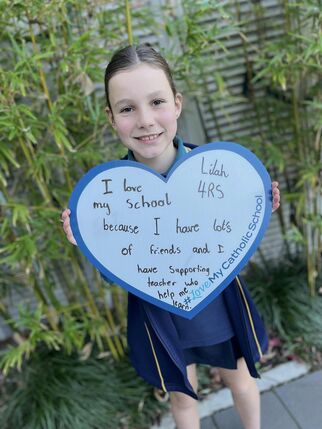 I love
my school
Lilah
4RS
because I have lot's
of friends and I
have supporting
teacher who
help me
learn.
#LoveMyCatholicSchool